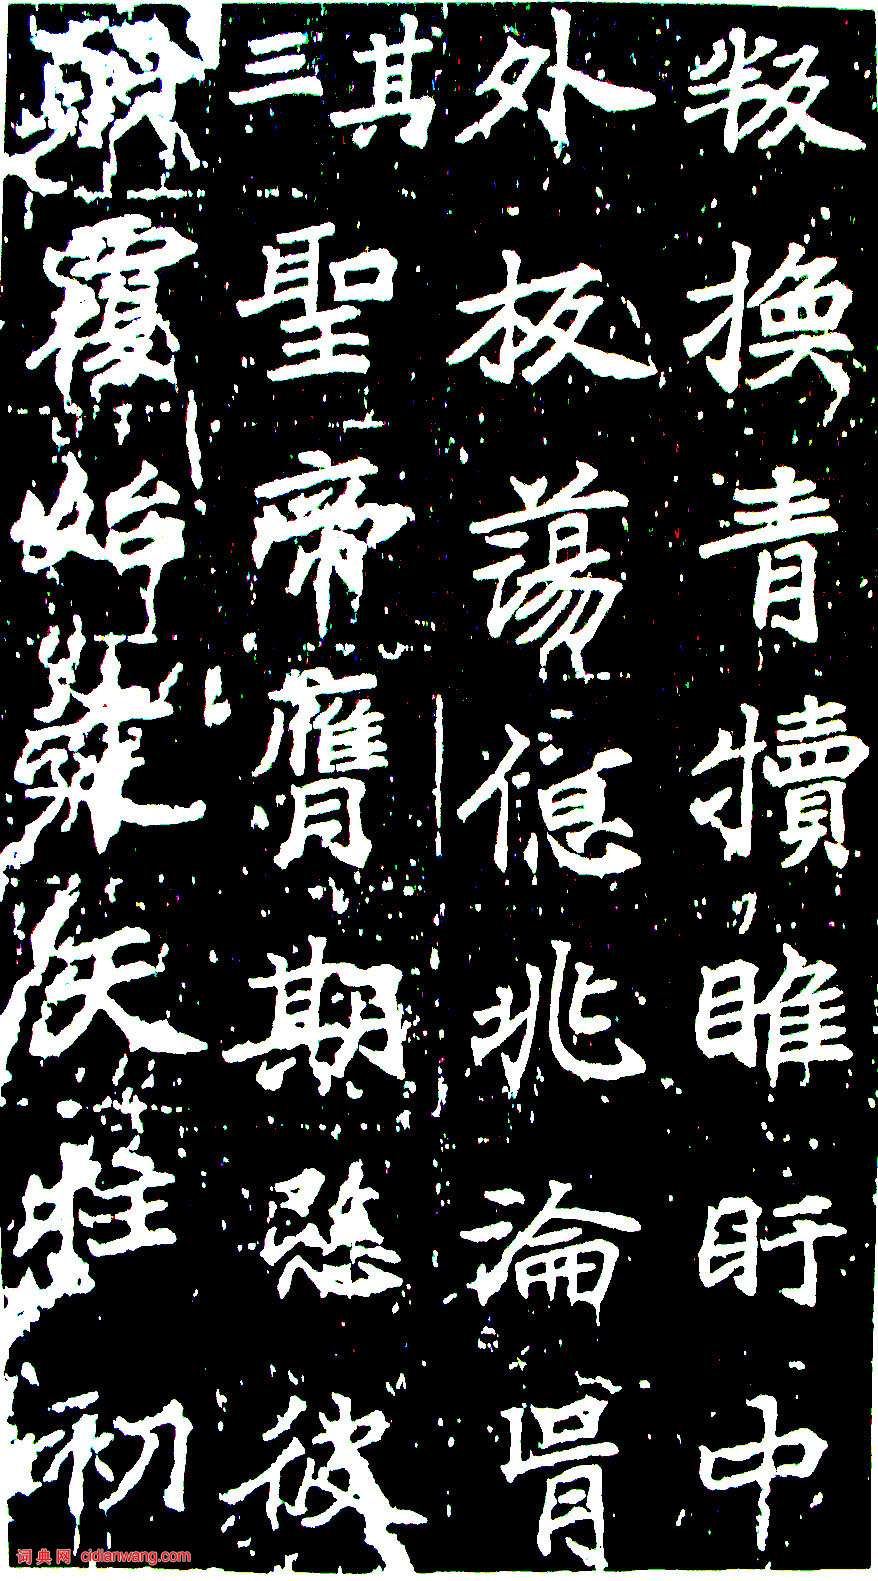 叛換青犢睢盱中
外板蕩億兆淪胥
其三聖帝膺期愍彼
顛覆始矢牡初
词典网 cidianwang.com